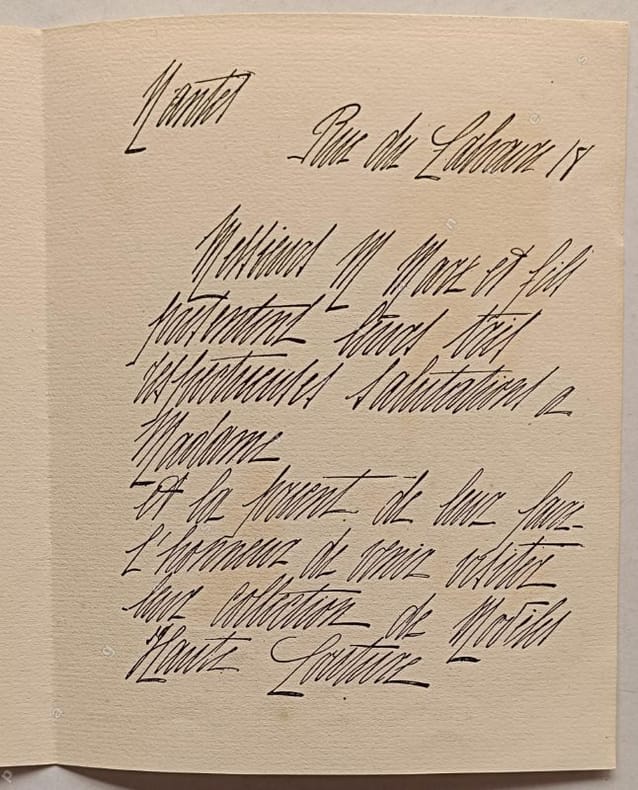 Nantes
Rue du Calvaire 18
Messieurs M Marx et fils
présentent leurs très
respectueuses salutations a
Madame
et la prient de leur faire
l'honneur de venir visiter
leur collection de Modèles
Haute Couture